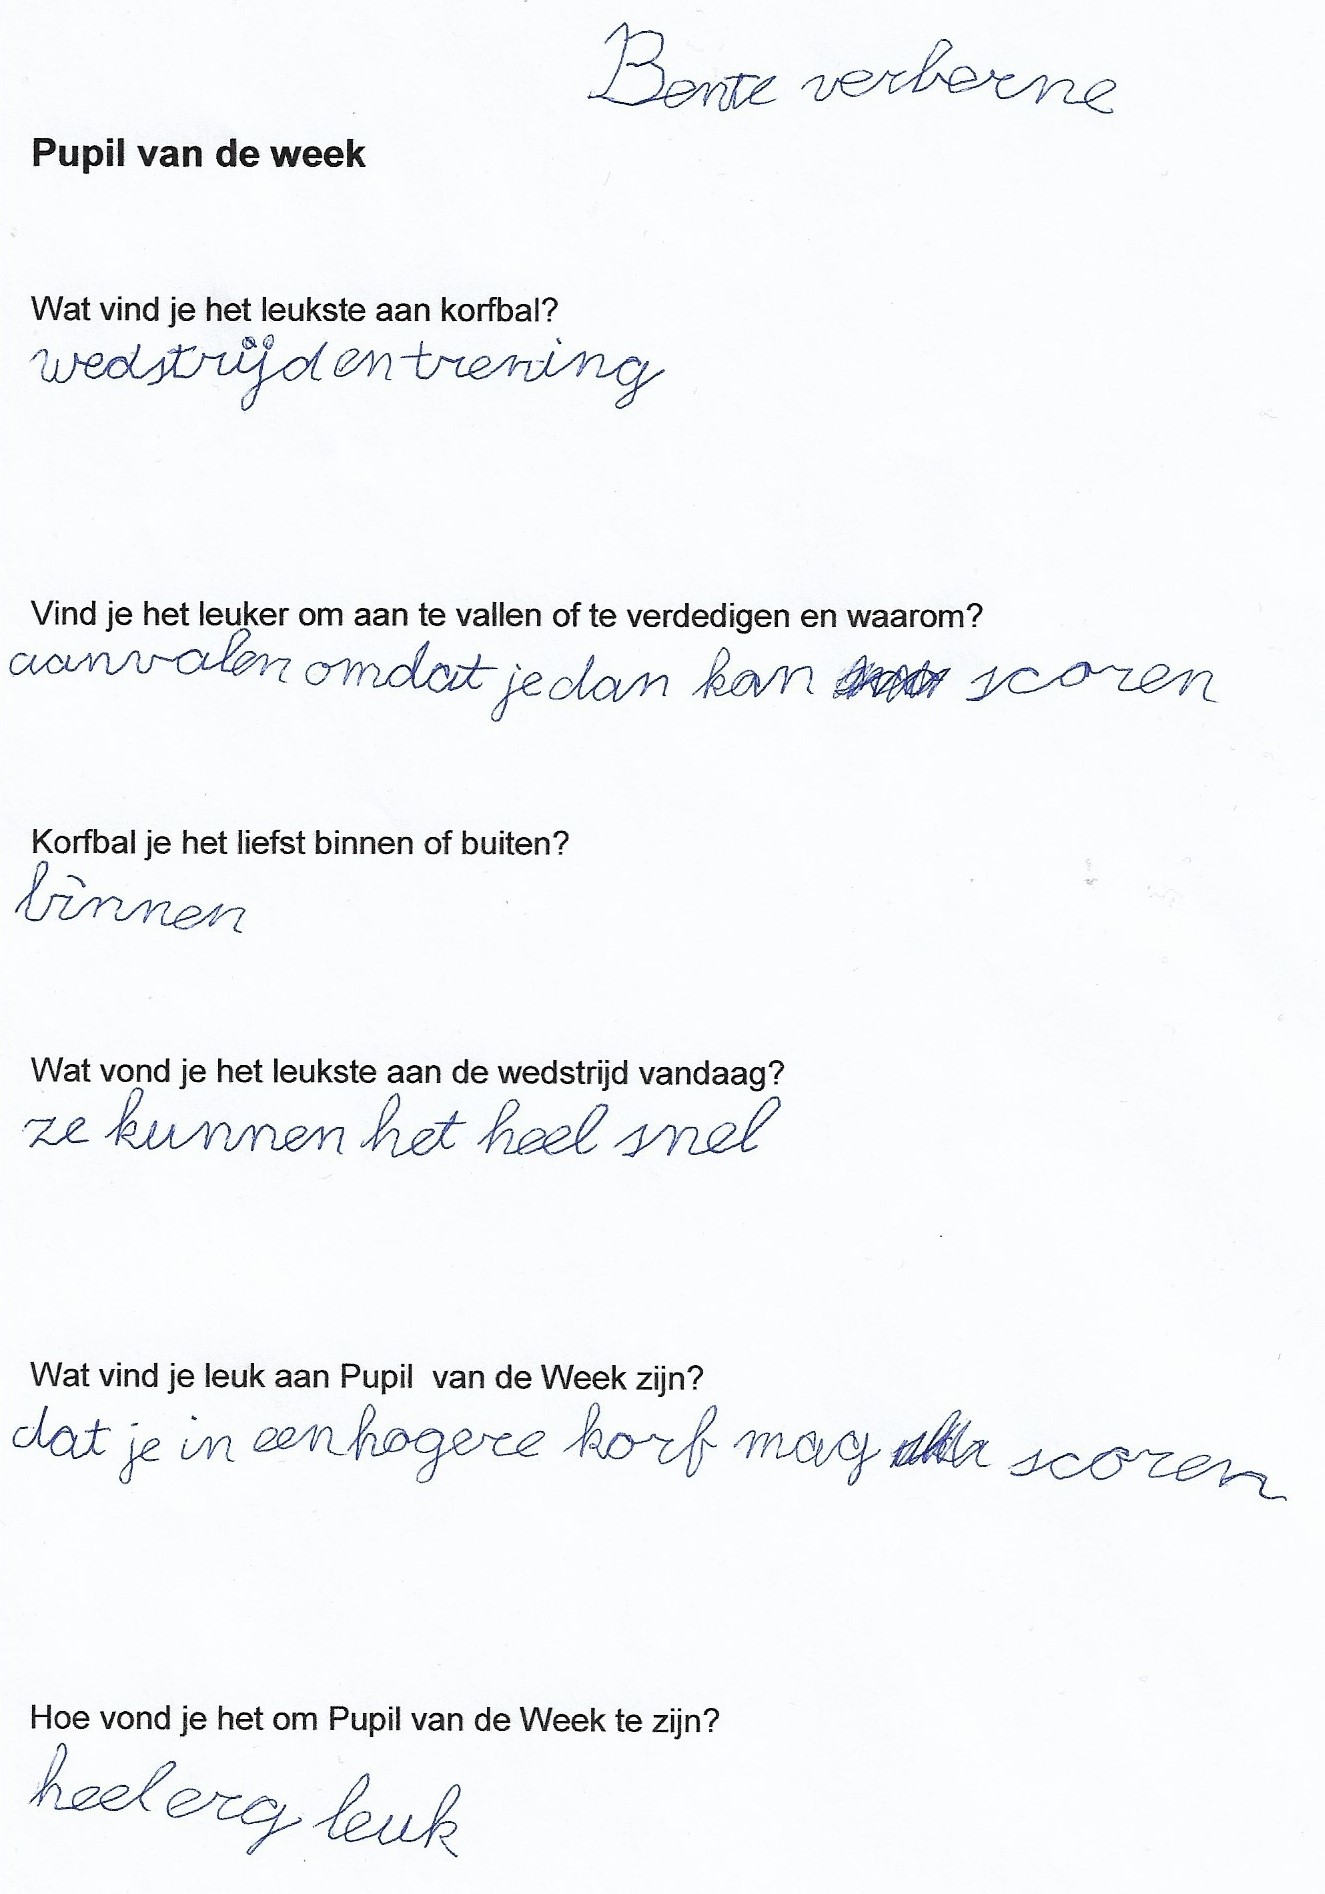 Bente verberne
Pupil van de week
Wat vind je het leukste aan korfbal?
wedstrijd en trening
Vind je het leuker om aan te vallen of te verdedigen en waarom?
aanvalen omdat je dan kan scoren
Korfbal je het liefst binnen of buiten?
binnen
Wat vond je het leukste aan de wedstrijd vandaag?
ze kunnen het heel snel
Wat vind je leuk aan Pupil van de Week zijn?
dat je in een hogere korf mag scoren
Hoe vond je het om Pupil van de Week te zijn?
heel erg leuk